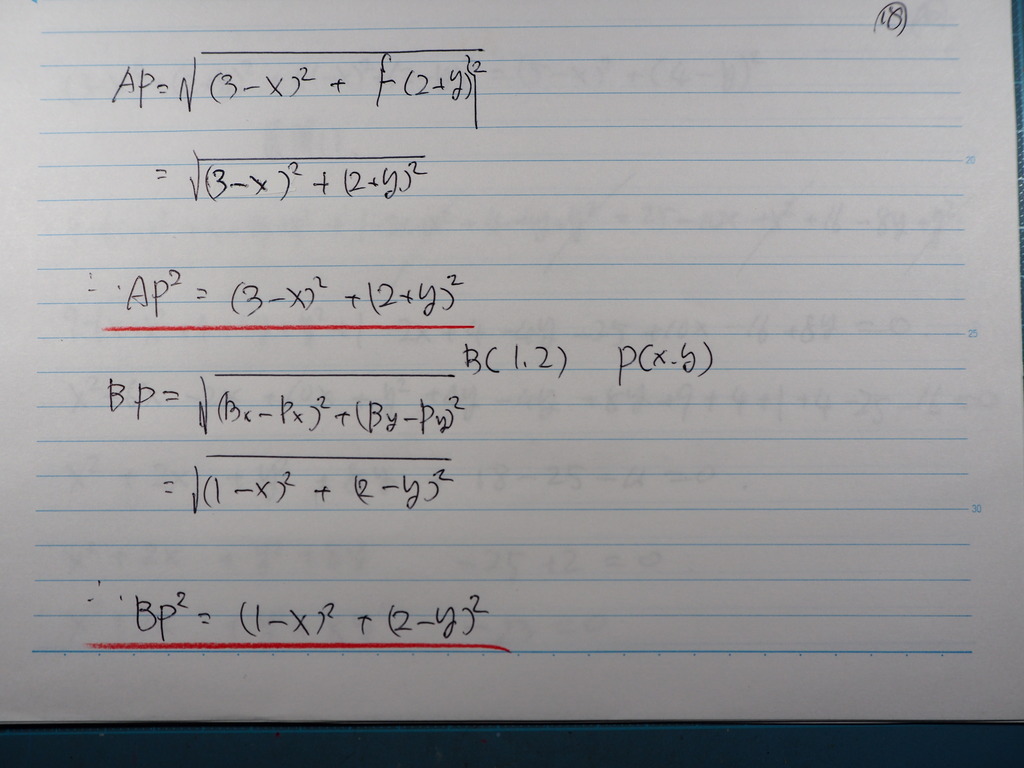 (18)
AP = √(3-x)² + {-(2+y)}²
= √(3-x)² + (2+y)²
∴ AP² = (3-x)² + (2+y)²
B(1.2) P(x.y)
BP = √(Bx-Px)² + (By-Py)²
= √(1-x)² + (2-y)²
∴ BP² = (1-x)² + (2-y)²
20
25
30